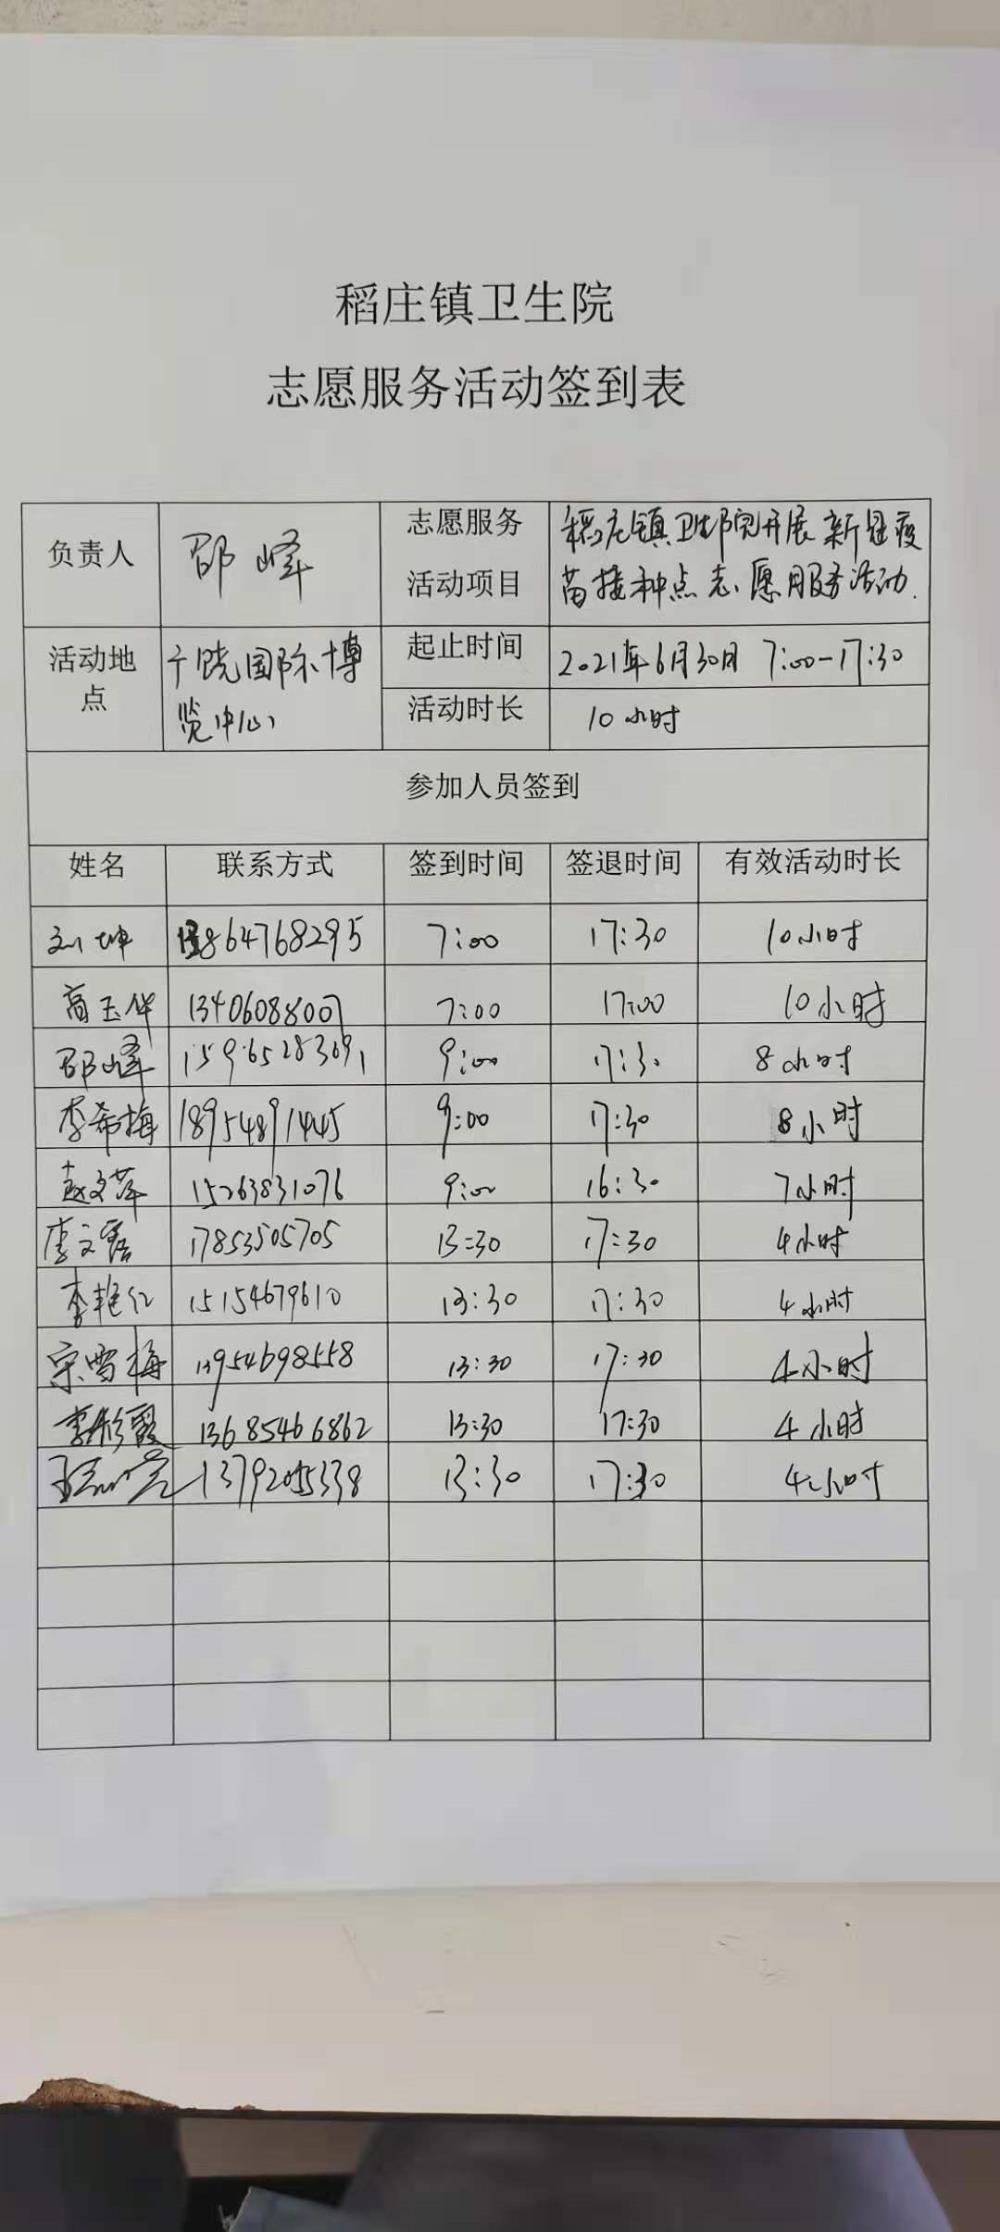 稻庄镇卫生院
志愿服务活动签到表
负责人 邵峰 志愿服务活动项目 稻庄镇卫生院开展新冠疫
苗接种点志愿服务活动.
活动地点 广饶国际博
览中心
起止时间 2021年6月30日 7:00-17:30
活动时长 10小时
参加人员签到
姓名 联系方式 签到时间 签退时间 有效活动时长
刘坤 18864768295 7:00 17:30 10小时
商玉华 13406088007 7:00 17:00 10小时
邵峰 15965283691 9:00 17:30 8小时
李希梅 18954891445 9:00 17:30 8小时
赵文萍 15263831076 9:00 16:30 7小时
李文 17853505705 13:30 17:30 4小时
李艳红 15154679610 13:30 17:30 4小时
宋雪梅 13954698558 13:30 17:30 4小时
李彩霞 13685466862 13:30 17:30 4小时
13:30 17:30 4小时